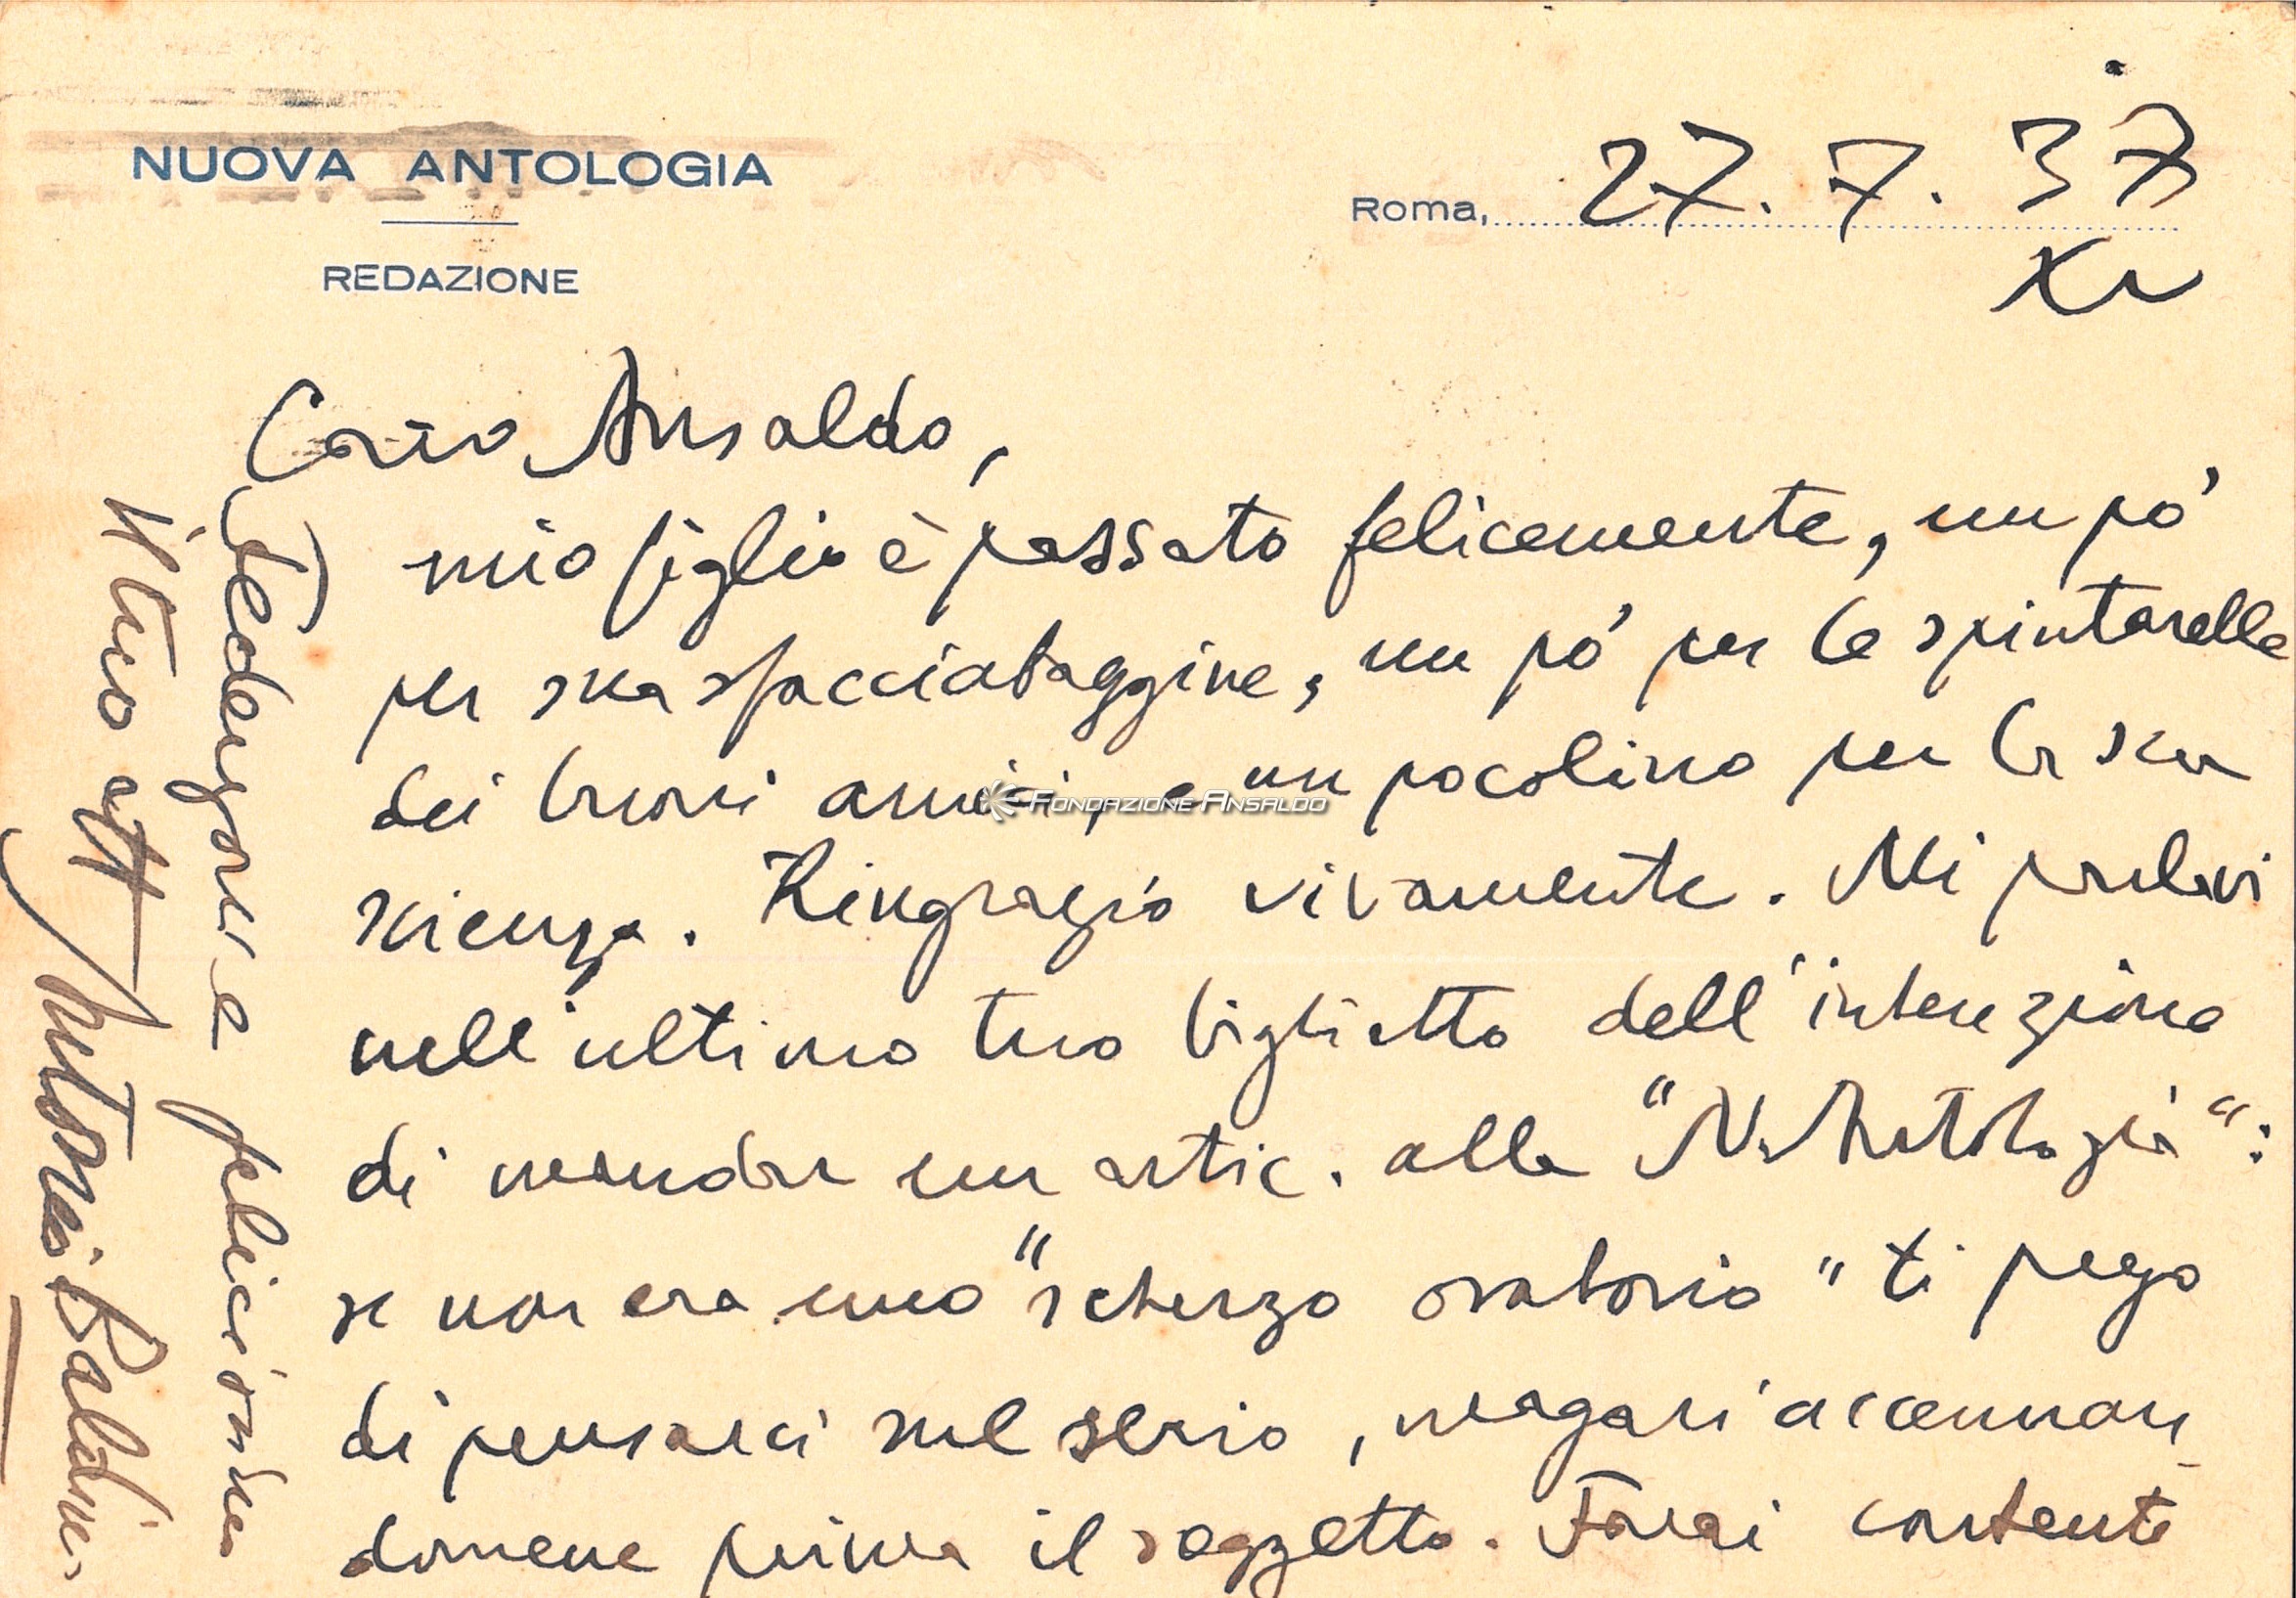 NUOVA ANTOLOGIA
REDAZIONE
Roma, 27. 7. 37
XV
Caro Ansaldo,
mio figlio è passato felicemente, un pò
per sua sfacciataggine, un pò per le spintarelle
dei buoni amici, e un pocolino per la sua
scienza. Ringrazio vivamente. Mi parlavi
nell'ultimo tuo biglietto dell'intenzione
di mandar un artic. alla "N. Antologia":
se non era uno "scherzo oratorio" ti prego
di pensarci sul serio, magari accennan-
domene prima il soggetto. Farai contenti
Federzoni e felicione
il tuo aff Antonio Baldini
FONDAZIONE ANSALDO